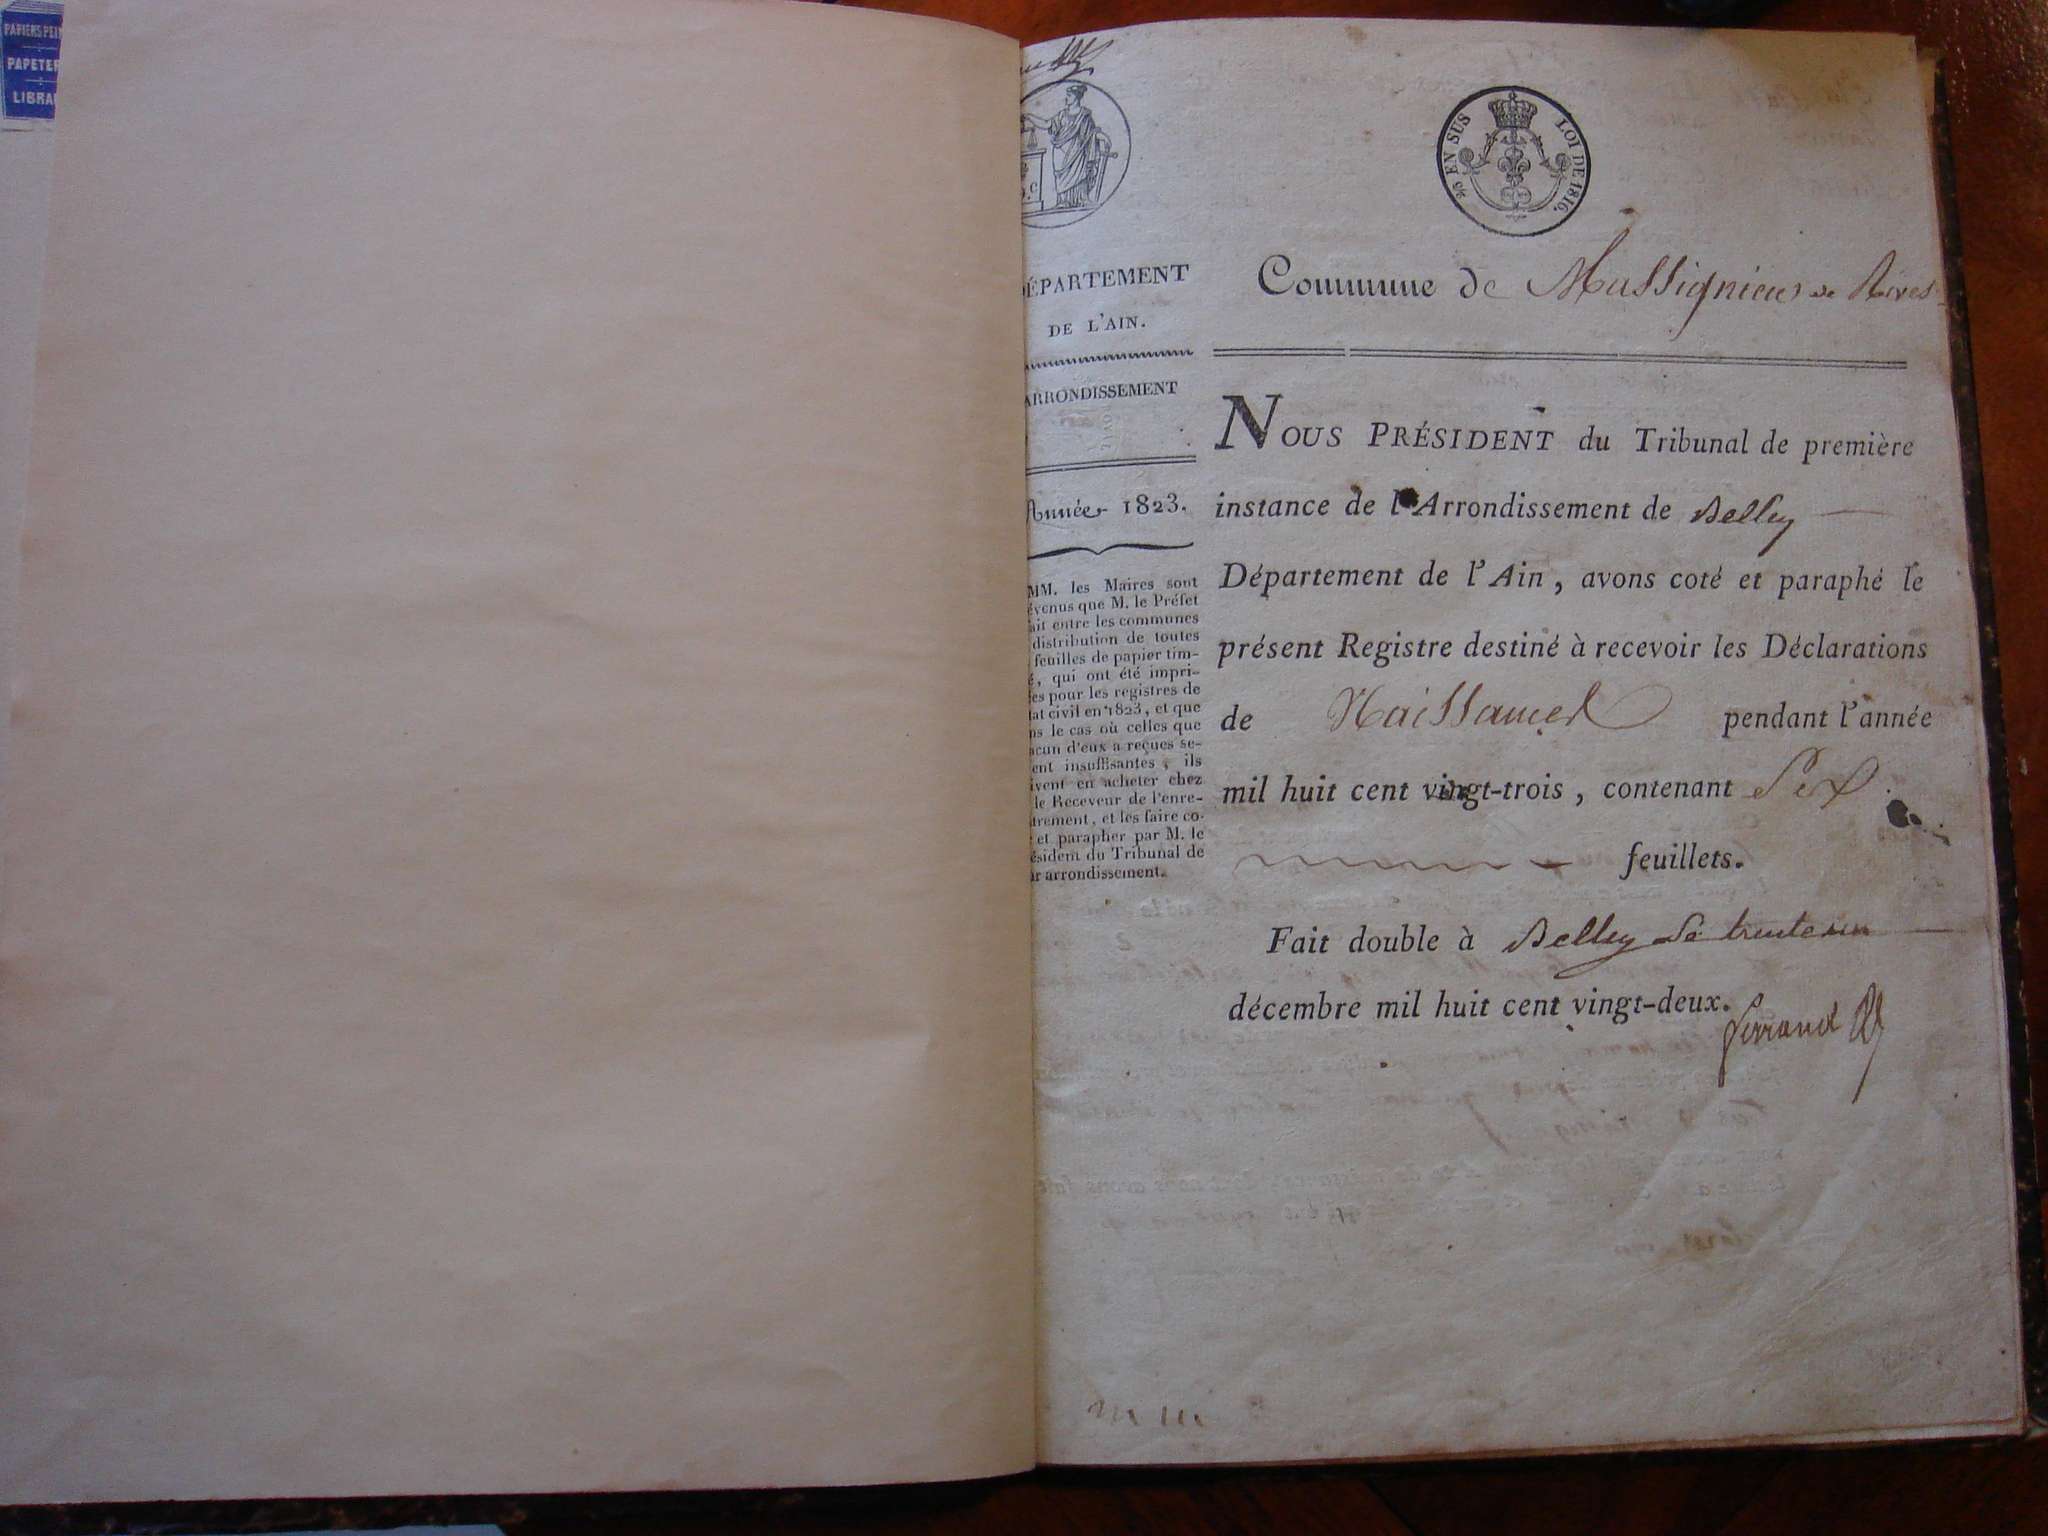 PAPIERS PEIN
PAPETER
LIBRAI
ÉPARTEMENT
DE L'AIN.
ARRONDISSEMENT
Année 1823.
MM. les Maires sont
évenus que M. le Préfet
ait entre les communes
distribution de toutes
feuilles de papier tim-
é, qui ont été impri-
es pour les registres de
tat civil en 1823, et que
ns le cas où celles que
acun d'eux a reçues se-
ent insuffisantes, ils
ivent en acheter chez
le Receveur de l'enre-
trement, et les faire co-
et parapher par M. le
ésident du Tribunal de
ur arrondissement.
EN SUS LOI DE 1816.
Commune de Massignieu de Rives
NOUS PRÉSIDENT du Tribunal de première
instance de l'Arrondissement de Belley
Département de l'Ain, avons coté et paraphé le
présent Registre destiné à recevoir les Déclarations
de Naissances pendant l'année
mil huit cent vingt-trois, contenant Six
feuillets.
Fait double à Belley le trente un
décembre mil huit cent vingt-deux.
Ferrand